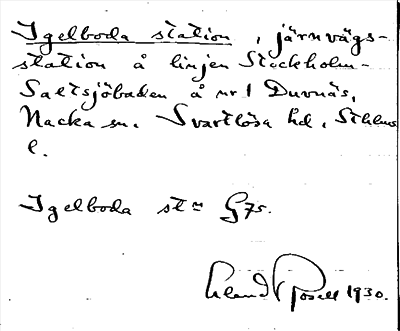 Igelboda station, järnvägs-
station å linjen Stockholm-
Saltsjöbaden å nr 1 Duvnäs,
Nacka sn. Svartlösa hd, Sthlms
l.
Igelboda stn G75.
Rosell 1930.